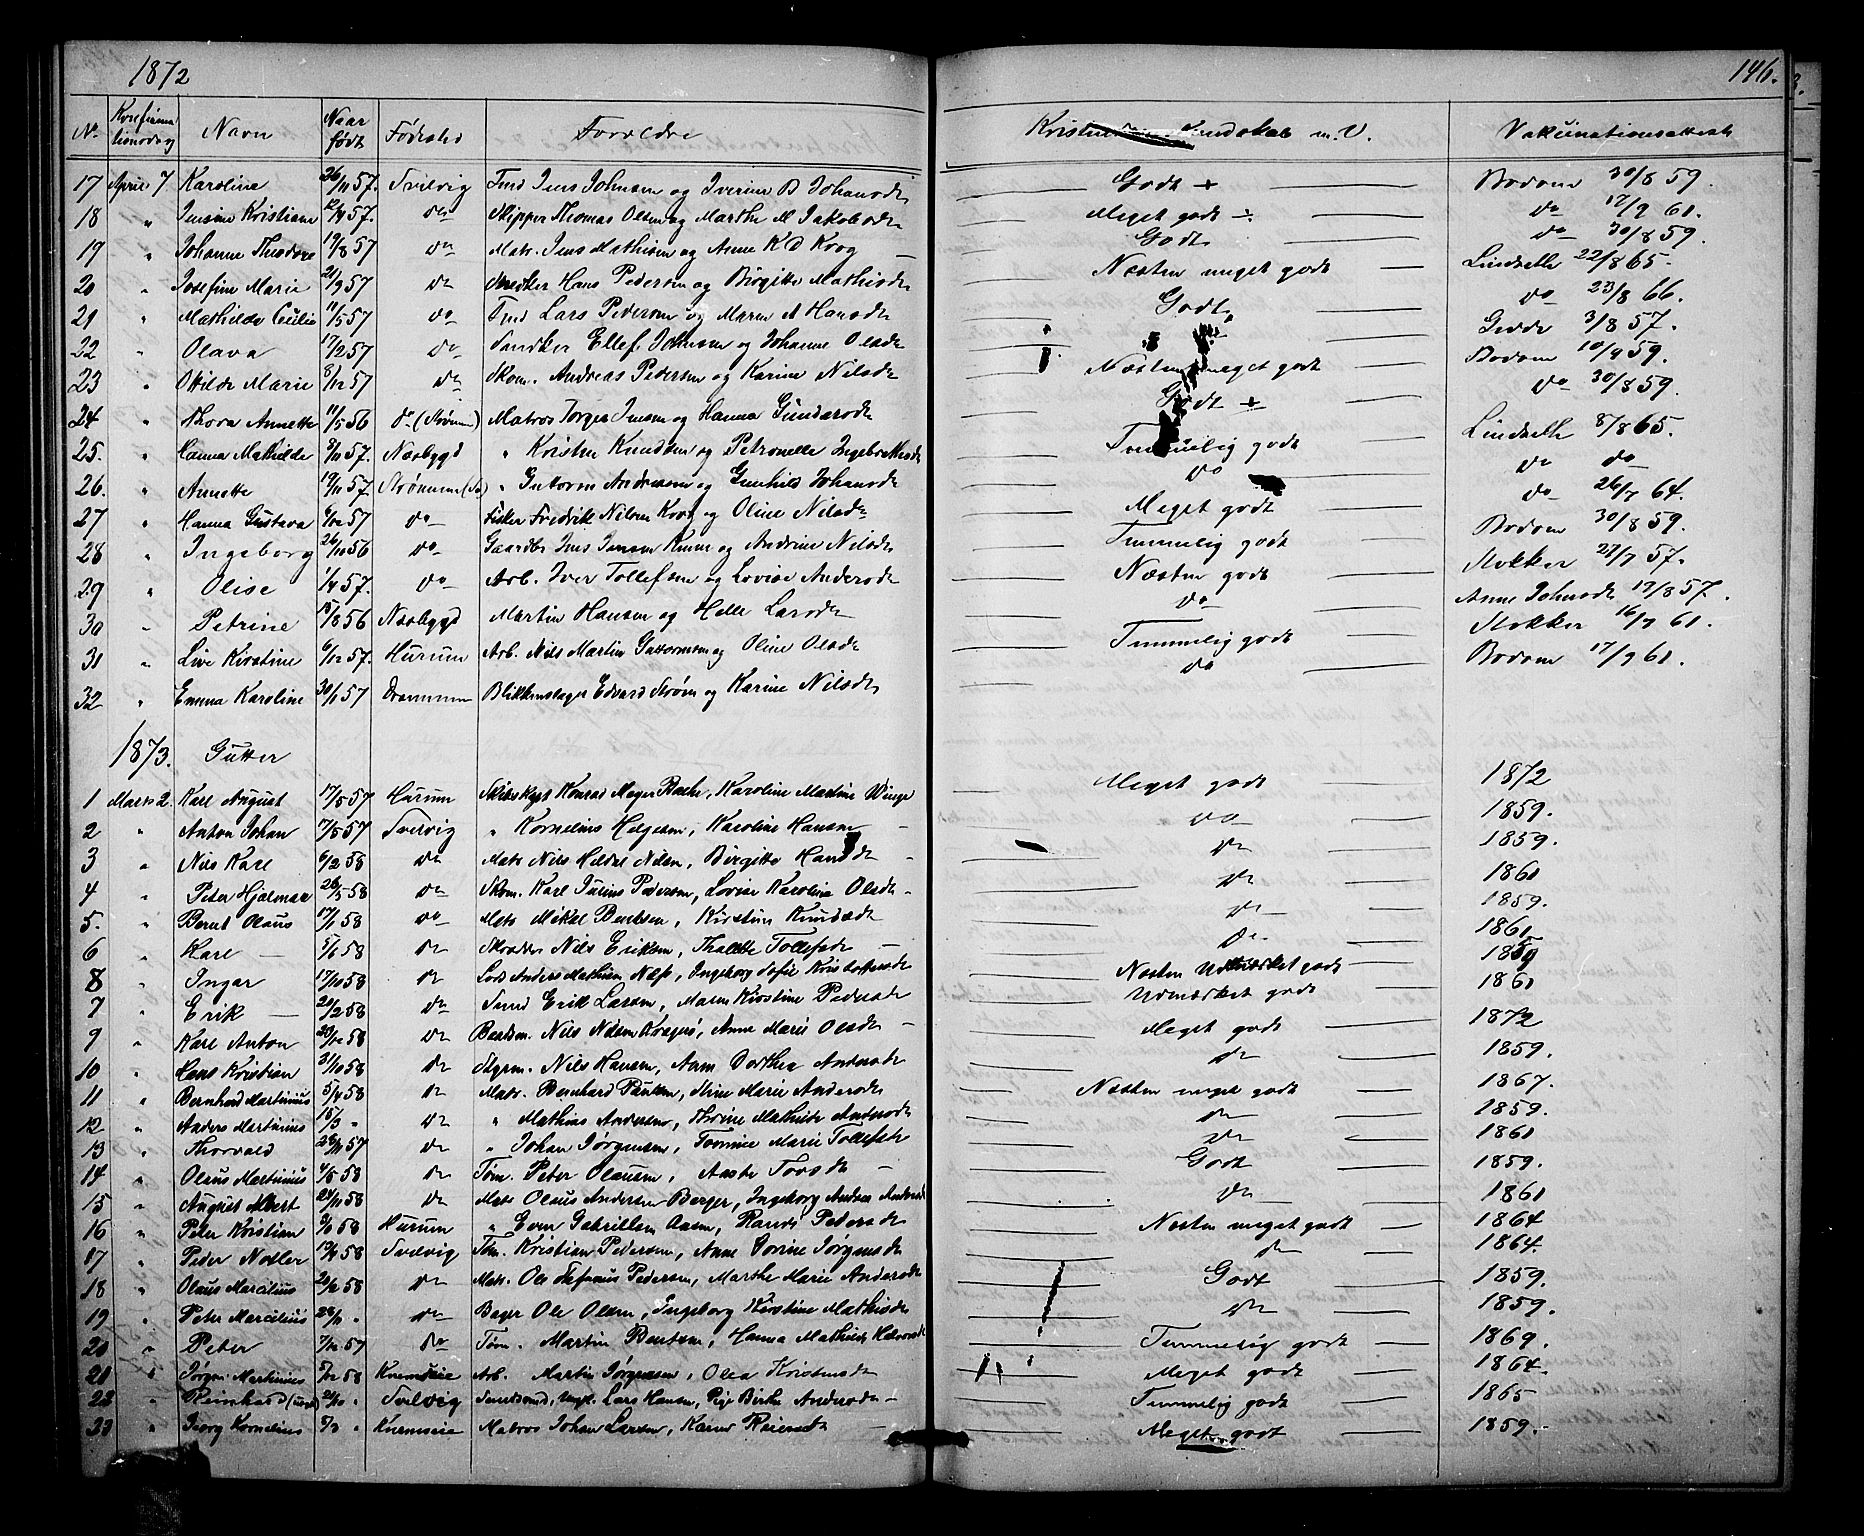 1872
146.
No Konfirmationsdag Navn Naar født Fødested Forældre Kristendoms Kundskab m.V. Vakcinationsattest
17 April 7. Karoline 26/11 57. Svelvig Tmd Jens Johnsen og Iverine B Johansdr Godt + Bodom 30/8 59.
18 " Jensine Kristiane 12/9 57. do Skipper Thomas Olsen og Marthe M Jakobsdr Meget godt ÷ do 17/9 61.
19 " Johanne Theodora 19/8 57 do Matr. Jens Mathisen og Anne K D Krog Godt do 30/8 59.
20 " Josefine Marie 21/9 57 do Snedker Hans Pedersen og Birgitte Mathisdr Næsten meget godt Lindseth 22/8 65.
21 " Mathilde Cecilie 11/5 57 do Tmd Lars Pedersen og Maren A Hansdr Godt do 23/8 66.
22 " Olava 17/2 57 do Snedker Ellef Johnsen og Johanne Olsdr Gedde 3/8 57.
23 " Otilde Marie 8/12 57 do Skom. Andreas Pedersen og Karine Nilsdr Næsten meget godt Bodom 10/9 59.
24 " Thora Annette 11/5 56 do (Strømm) Matros Jørgen Jensen og Hanna Gundersdr Godt + do 30/8 59.
25. " Hanna Mathilde 8/11 57. Næsbygd " Kristen Knudsen og Petronelle Ingebrettsdr Temmelig godt Lindseth 8/8 65.
26. " Annette 19/11 57. Strømmen " Guttorm Andersen og Gunhild Johansdr do do do
27 " Hanna Gustava 6/12 57 do Fisker Fredrik Nilsen Korg og Oline Nilsdr Meget godt do 26/7 64.
28 " Ingeborg 26/10 56 do Gaardbr Jens Jensen og Andrine Nilsdr Temmelig godt Bodom 30/8 59.
29 " Olise 1/4 57. do Arb. Iver Tollefsen og Lovise Andersdr Næsten godt Stokker 27/7 57.
30 " Petrine 15/8 56 Næsbygd Martin Hansen og Helle Larsdr do Anne Johnsdr 17/8 57.
31 " Live Kirstine 6/12 57. Hurum Arb. Nils Martin Guttormsen og Oline Olsdr Temmelig godt Stokker 16/9 61.
32 " Emma Karoline 30/11 57 Drammen Blikkenslager Edvard Strøm og Karine Nilsdr do Bodom 17/9 61.
1873. Gutter
1 Marts 2. Karl August 17/5 57 Hurum Konrad Meyer Bache, Karoline Martine Winge Meget godt 1872
2 " Anton Johan 17/5 57 Svelvig " Kornelius Helgesen, Karoline Hansen do 1859.
3 " Nils Karl 6/2 58 do Matr Nils Heldal Nilsen, Birgitte Hansdr do 1859.
4 " Peter Hjalmar 26/5 58 do Skom. Karl Julius Pedersen, Lovise Karoline Olsdr do 1860
5. " Bernt Olaus 17/1 58 do Matr Mikal Berntsen, Kirstine Knudsdr do 1859.
6 " Karl 5/6 58 do Skræder Nils Eriksen, Thalette Tollefsdr do 1861
8 " Ingar 17/10 58 do Lods Anders Mathisen Næss, Ingeborg Sofie Kristoffersdr Næsten Udmærket godt 1859
7 " Erik 20/2 58 do Tmd Erik Larsen, Maren Kirstine Pedersdr Udmærket godt 1861
9 " Karl Anton 20/12 58 do Baadsm. Nils Nilsen Kragerø, Anne Marie Olsdr Meget godt 1872
10 " Hans Kristian 31/10 58 do Styrm. Nils Hansen, Anne Dorthea Andersdr do 1859.
11 " Bernhard Martinius 5/4 58 do Matr. Bernhard Paulsen, Anne Marie Andersdr Næsten meget godt 1867.
12 " Anders Martinius 15/3 " do " Mathias Andersen, Thrine Mathilde Andersdr do 1859.
13 " Thorvald 26/11 57 do " Johan Jørgensen, Tomine Marie Tollefsdr do 1861
14 " Olaus Martinius 4/5 58 do Tøm. Peter Olausen, Aaste Torsdr Godt 1859.
15 " August Albert 24/11 58 do Matr Olaus Andersen Berger, Ingeborg Andrea Andersdr do 1861
16 " Peter Kristian 58 Hurum " Even Gabrielsen Aasen, Randi Pedersdr Næsten meget godt 1864
17 " Peder Notler 19/4 58 Svelvig Tøm. Kristian Pedersen, Anne Dorine Jørgensdr do 1864.
18 " Olaus Marcilius 20/12 58 do Matr. Ole Stefanus Pedersen, Marthe Marie Andersdr Godt 1859.
19 " Peter Marcilius 28/11 " do Bager Ole Olsen, Ingeborg Kirstine Mathisdr do 1859.
20 " Peter 7/12 57 do Tøm. Martin Berntsen, Hanna Mathilde Halvorsdr Temmelig godt 1869.
21 " Jørgen Martinius 5/12 58 Knemseie Arb. Martin Jørgensen, Olea Kristensdr Meget godt 1864.
22 " Reinhard (uægte) 21/10 " Svelvig Ungk. Lars Hansen, Pige Birthe Andersdr Temmelig godt 1865
23 " Georg Kornelius 5/3 " Knemseie Matros Johan Larsen, Karen Reiersdr Meget godt 1859.